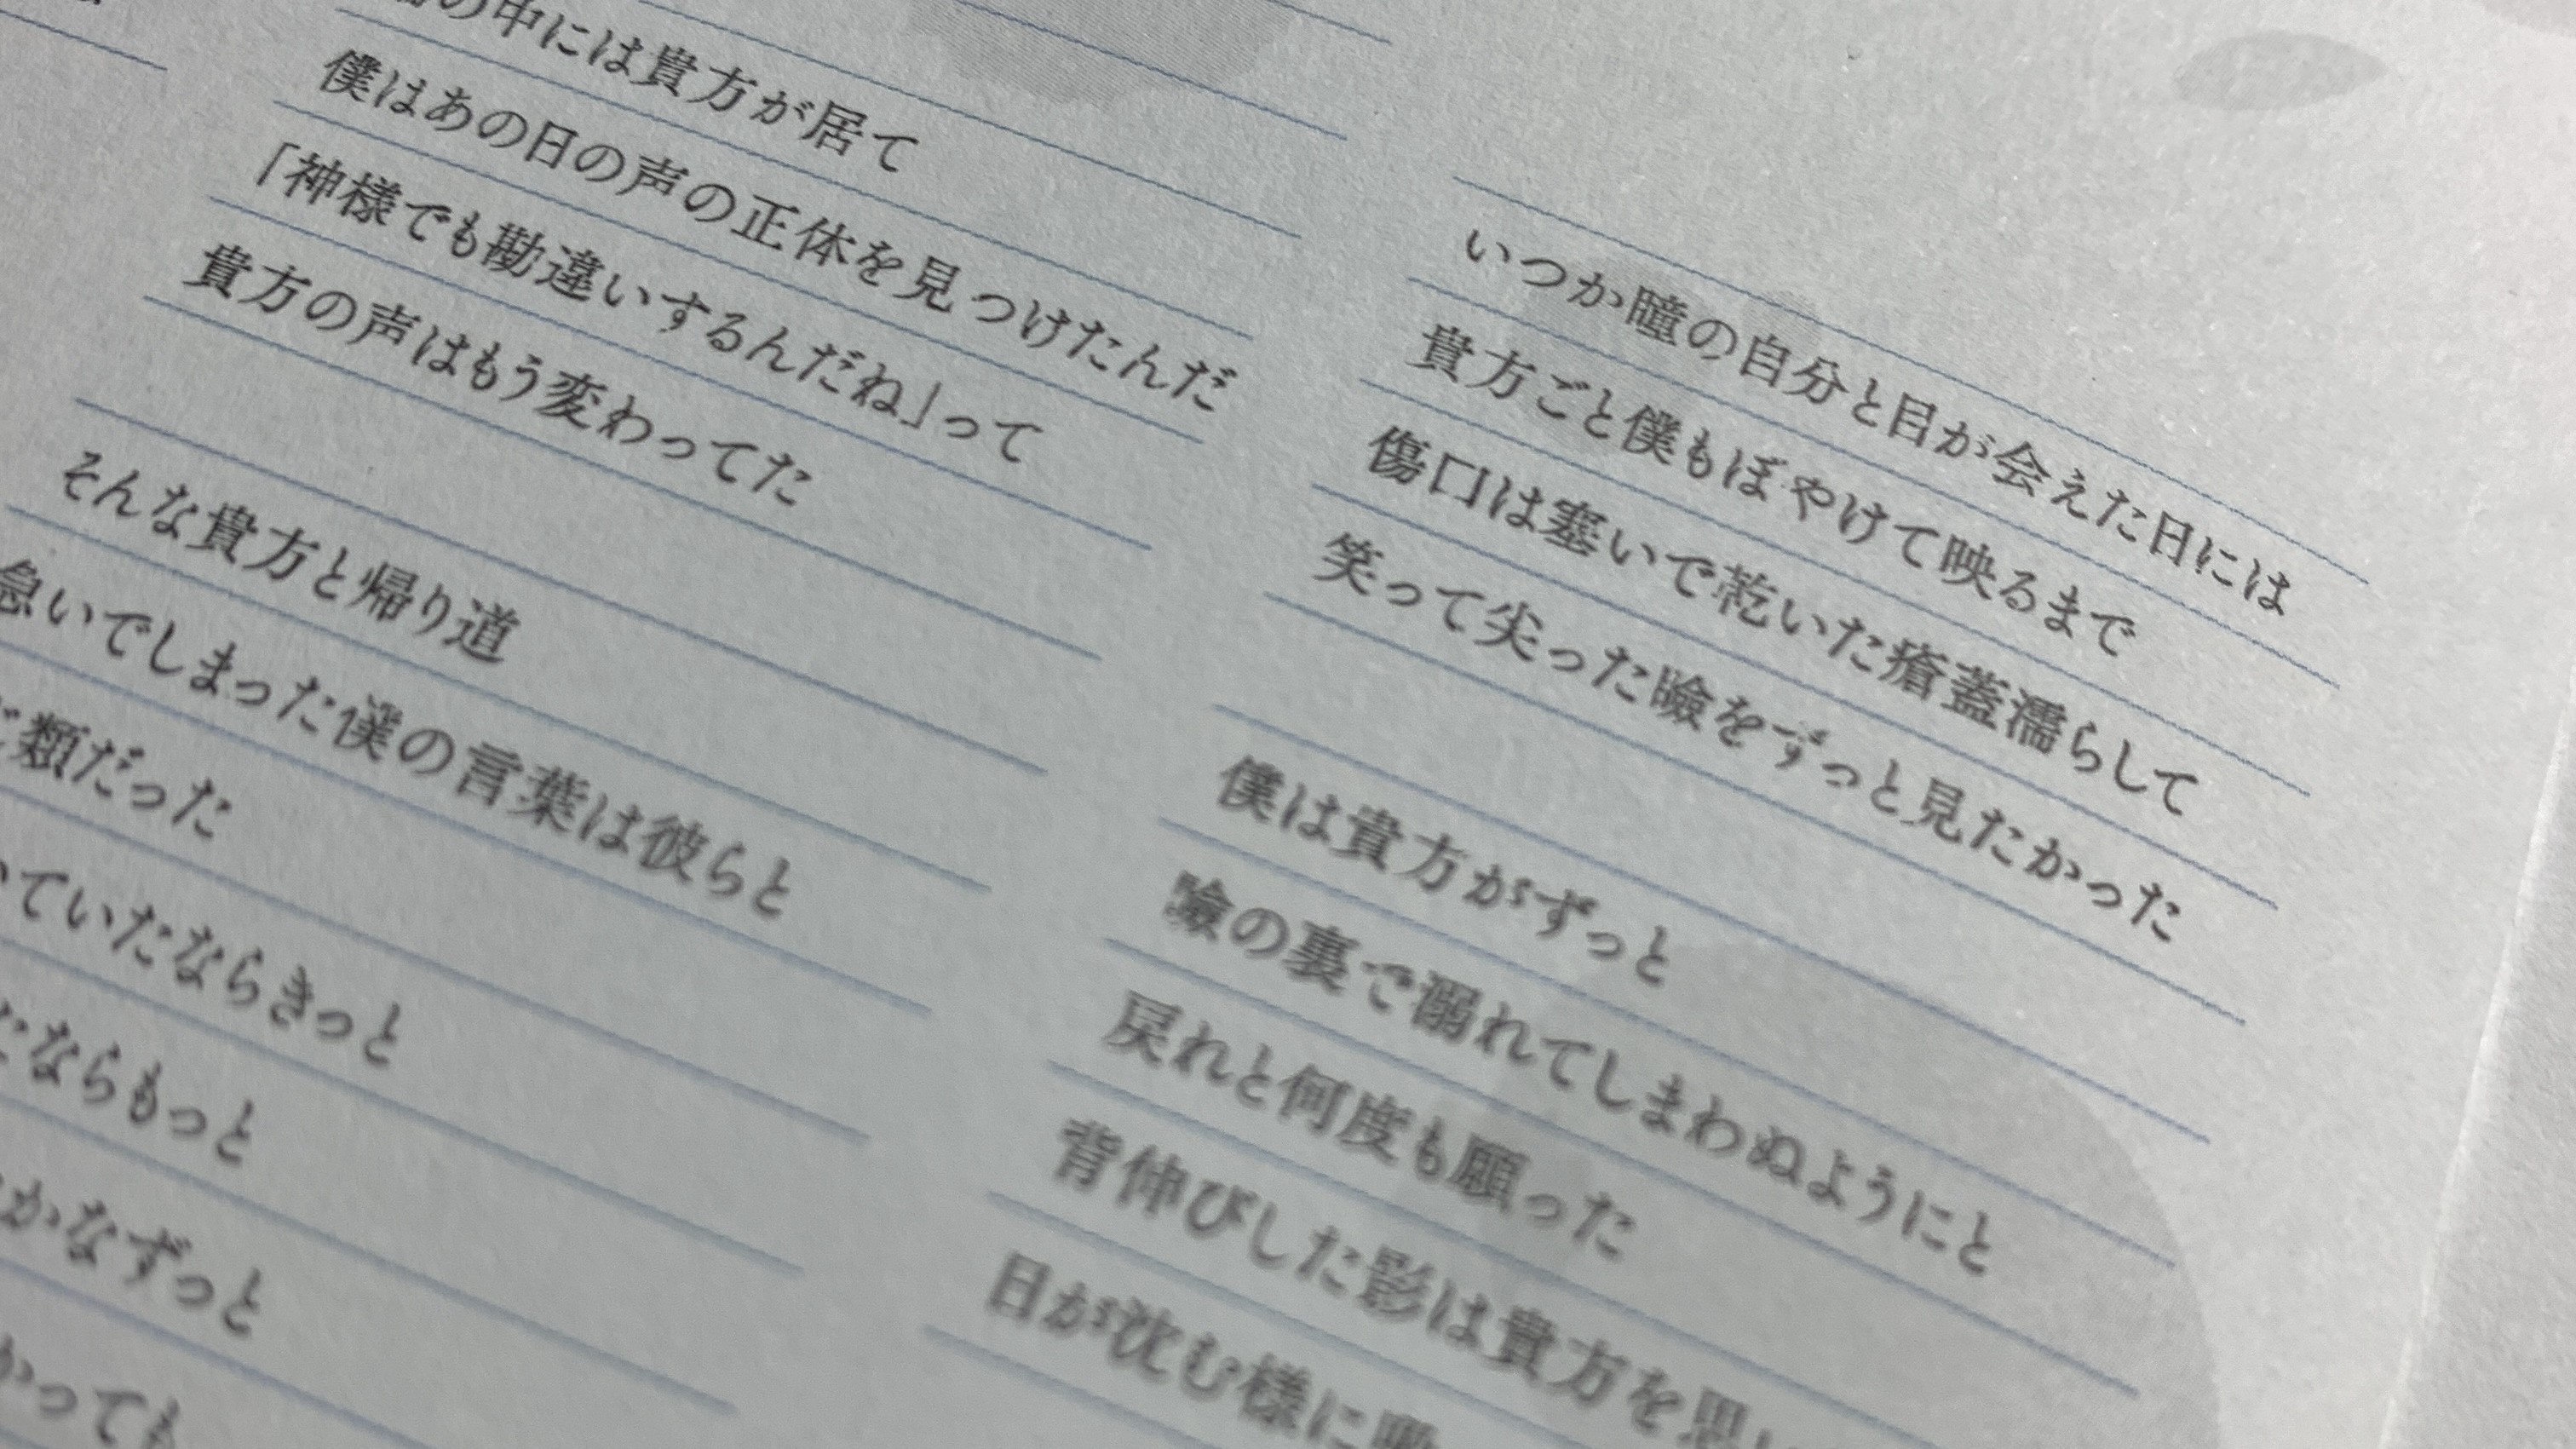 の中には貴方が居て
僕はあの日の声の正体を見つけたんだ
「神様でも勘違いするんだね」って
貴方の声はもう変わってた
そんな貴方と帰り道
急いでしまった僕の言葉は彼らと
類だった
ていたならきっと
ならもっと
かなずっと
かっても
いつか瞳の自分と目が会えた日には
貴方ごと僕もぼやけて映るまで
傷口は塞いで乾いた瘡蓋濡らして
笑って尖った瞼をずっと見たかった
僕は貴方がずっと
瞼の裏で溺れてしまわぬようにと
戻れと何度も願った
背伸びした影は貴方を思い
日が沈む様に